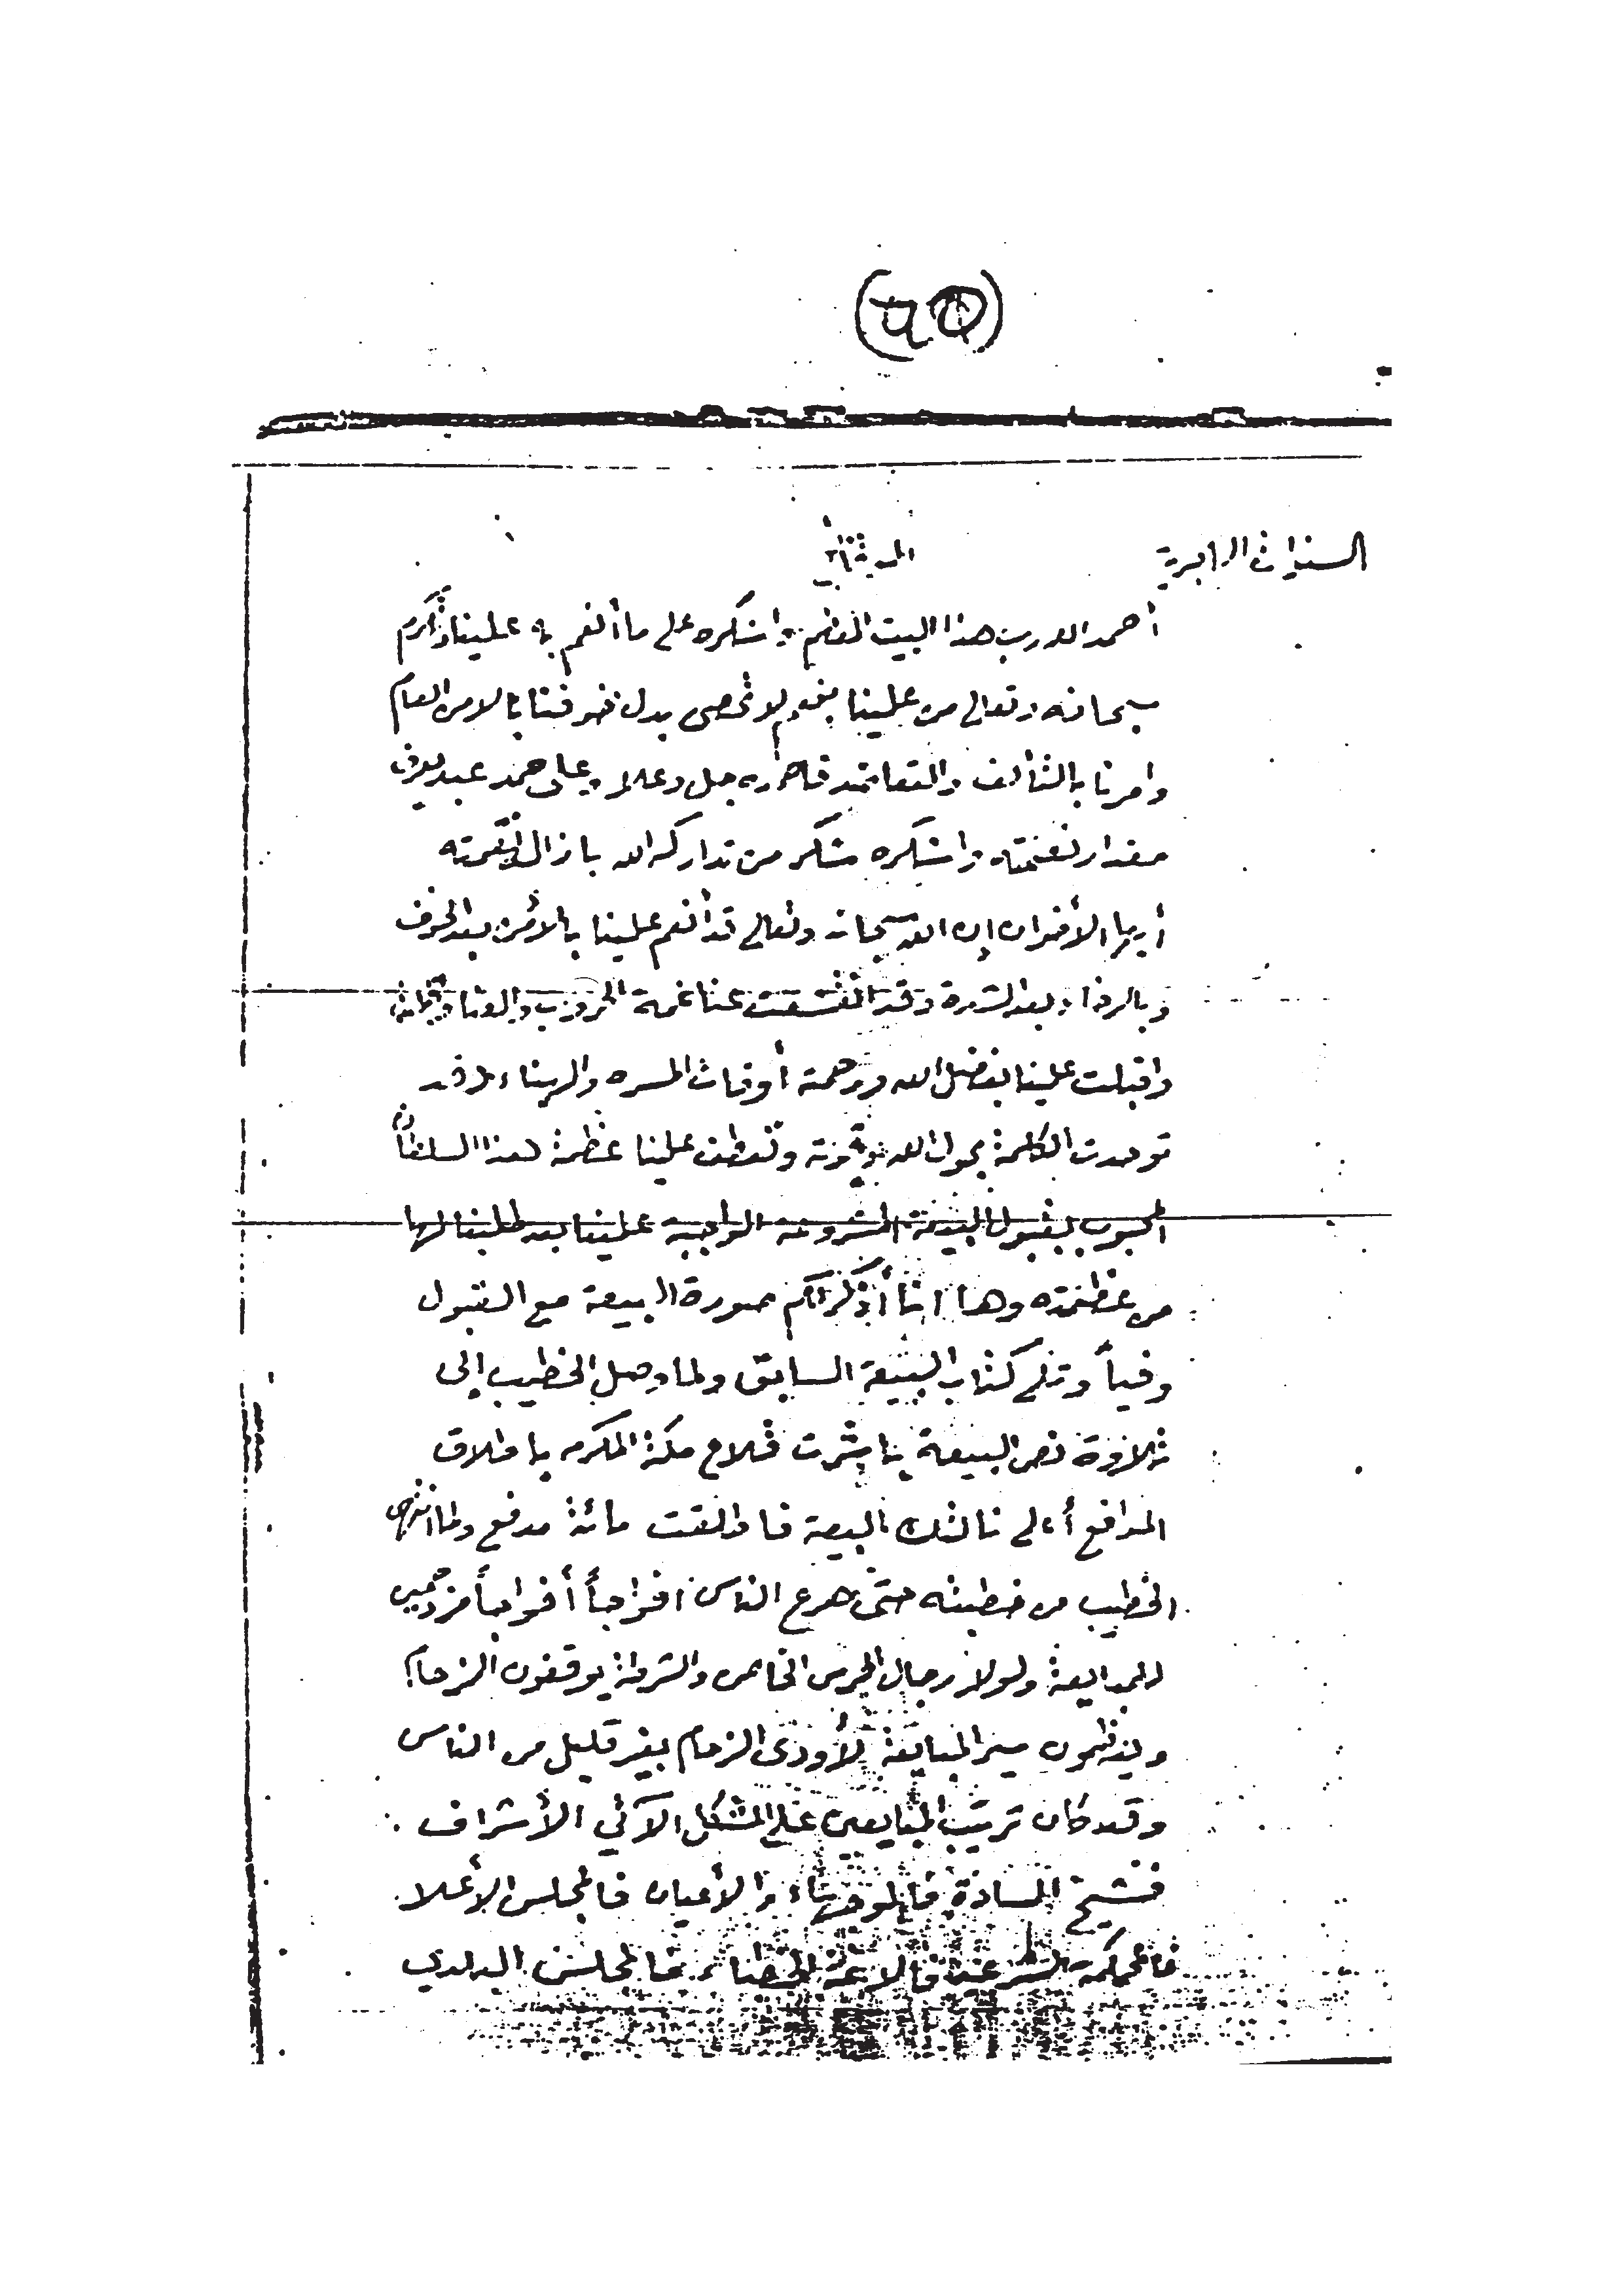 (٧٥)
السنوات الهجرية
أحمد الله رب هذا البيت المعظم واشكره على ما أنعم به علينا وأكرم
سبحانه وتعالى من علينا بنعم لا تحصى بدل خوفنا بالامن العام
وامرنا بالتآلف والتعاضد فاحمده جل وعلا وعلى حمد عبد يعرف
مقدار نعمته واشكره شكر من تداركه الله بازالة نقمته
أيها الأخوان إن الله سبحانه وتعالى قد أنعم علينا بالأمن بعد الخوف
وبالرخاء بعد الشدة وقد انقشعت عنا غمة الحروب
واقبلت علينا بفضل الله ورحمته أوقات المسره والهناء وقد
توحدت الكلمة بحول الله وقوته وتعطف علينا عظمة هذا السلطان
المحبوب بقبول البيعة المشروعة الواجبة علينا بعد طلبنا لها
من عظمته وها انا أذكر لكم صورة البيعة مع القبول
وفيأ وتلى كتاب البيعة السابق ولما وصل الخطيب إلى
تلاوة نص البيعة باشرت قلاع مكة المكرمه باطلاق
المدافع فاطلقت مائة مدفع ولما انتهى
الخطيب من خطبته حتى هرع الناس افواجاً أفواجاً مزدحمين
للمبايعة ولولا رجال الحرس الخاص والشرطة يوقفون الزحام
وينظمون سير المبايعة لأودى الزحام بغير قليل من الناس
وقد كان ترتيب المبايعين على الشكل الآتي الأشراف
فشيخ السادة فالوجهاء والأعيان فالمجلس الأعلا
فالمحكمة الشرعية فالائمة الخطباء فالمجلس البلدي